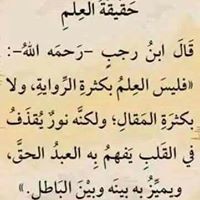 حَقِيقَةُ العِلْمِ
قَالَ ابنُ رجبٍ -رَحمَه اللهُ-:
«فليسَ العِلمُ بكثرةِ الرِّوايةِ، ولا
بكثرَةِ المَقالِ؛ ولكنَّه نورٌ يُقذَفُ
في القَلبِ يَفهمُ بِه العبدُ الحقَّ،
ويميِّزُ به بينَه وبيْنَ البَاطلِ.»